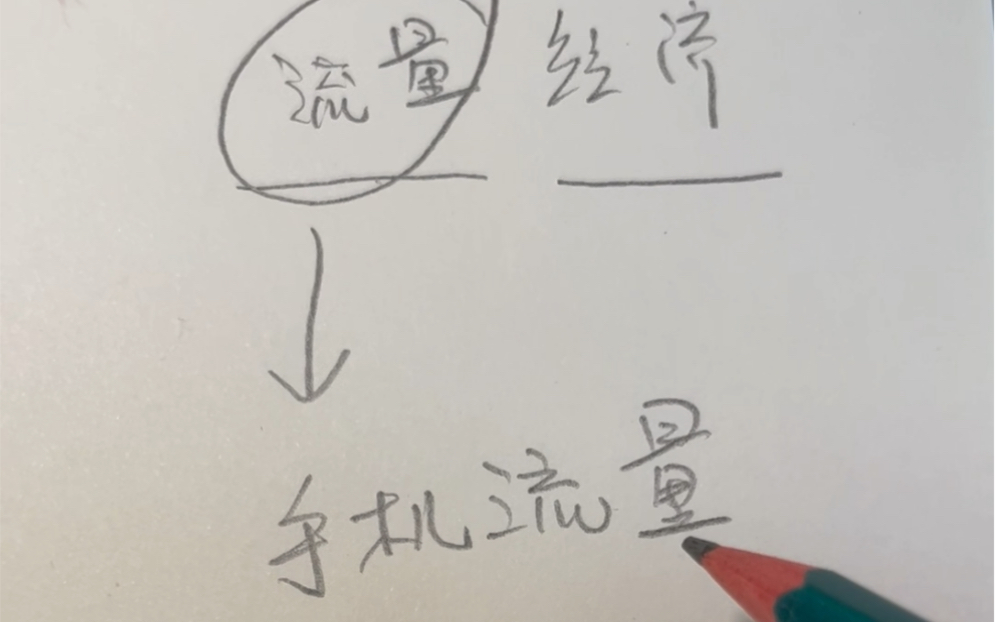 流量 经济
手机流量